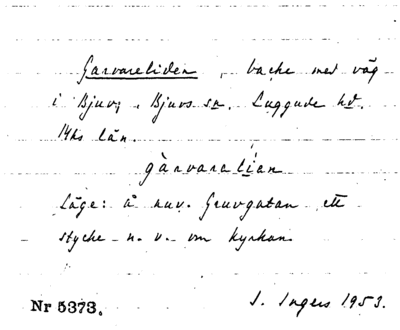 Garvareliden, backe med väg
i Bjuv, Bjuvs sn. Luggude hd.
Mhs län.
gàrvaralían
Läge: å nuv. Gruvgatan ett
stycke n. v. om kyrkan.
Nr 5373. I. Ingers 1953.